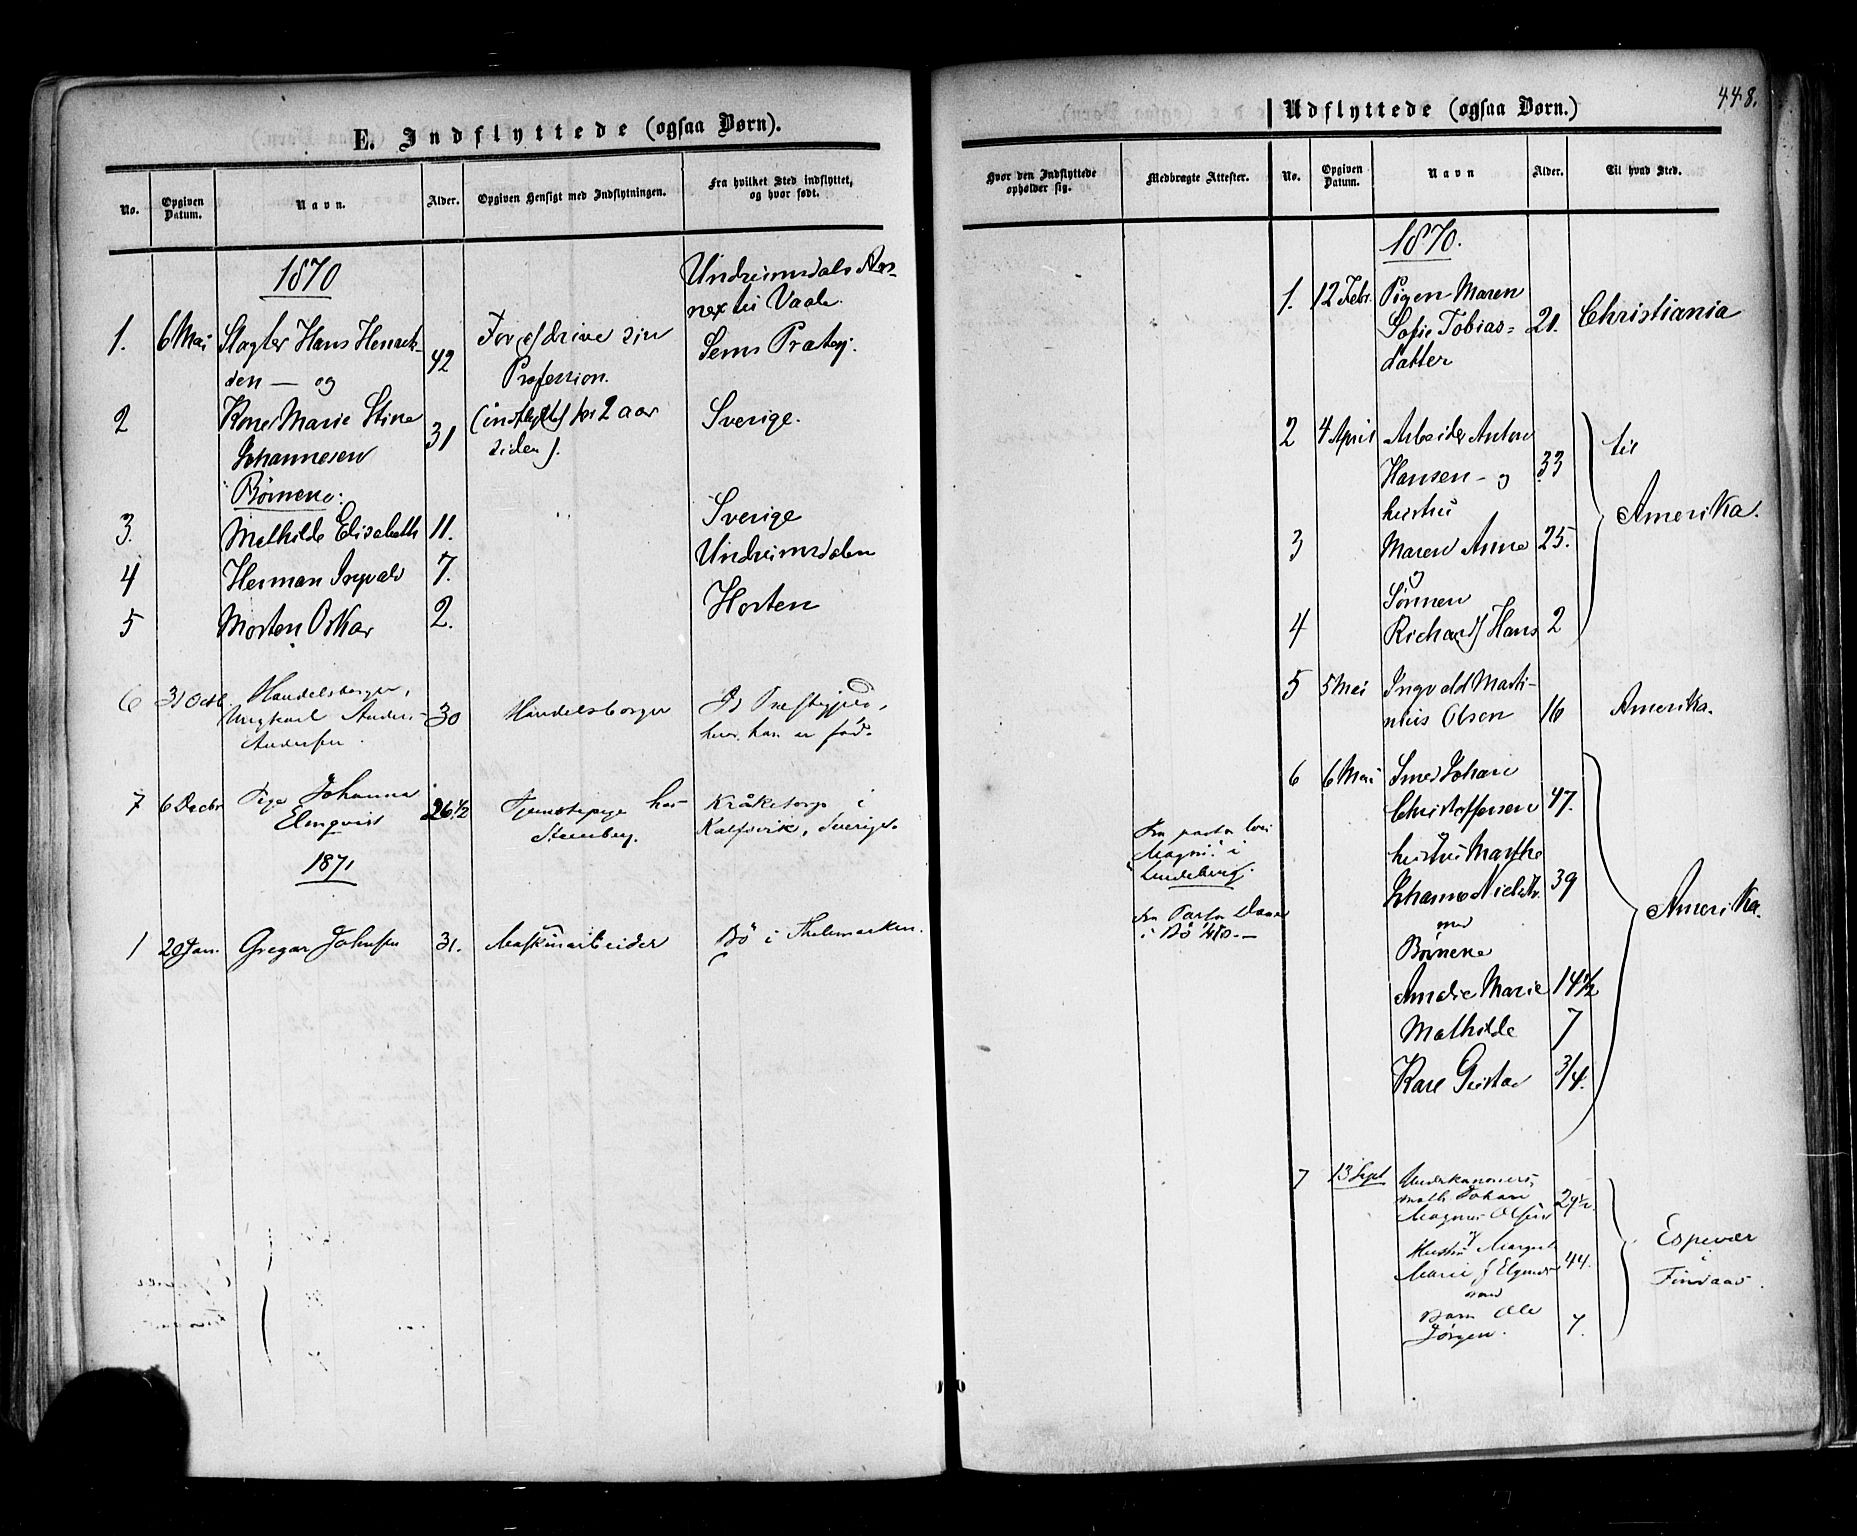 448.
E. Indflyttede (ogsaa Børn).
No.
Opgiven Datum.
Navn.
Alder.
Opgiven Hensigt med Indflytningen.
Fra hvilket Sted indflyttet, og hvor født.
1870
Undrimsdals An-
nex til Vaale.
1. 6 Mai Slagter Hans Henrik- 42 For at drive sin Sems Prstgj.
sen — og Profession.
2 Kone Marie Stine 31 (indflyttet for 2 aar Sverige.
Johannesen siden).
Børnene:
3. Mathilde Elisabeth 11. Sverige
4 Herman Ingvald 7. Undrimsdalen
5 Morten Oskar 2. Horten
6 31 Octb Handelsborger,
Ungkarl Anders 30 Handelsborger
Andersen. hvor han er født.
7 6 Decbr Pige Johanna 26 1/2 Tjenestepige hos
Elmqvist Steenberg. Sverige.
1871
1 20 Jan. Gregar Johnsen 31. Maskinarbeider Bø i Thelemarken.
Udflyttede (ogsaa Børn.)
Hvor den Indflyttede opholder sig.
Medbragte Attester.
No.
Opgiven Datum.
Navn
Alder.
Til hvad Sted.
Fra pastor
Magnus i
Fra Pastor
i Bø
1870.
1. 12 Febr. Pigen Maren
Sofie Tobias= 21. Christiania
datter
2 4 April Arbeider Anton til
Hansen - og 33
hustru Amerika.
3 Maren Anne 25.
og
Sønnen
4 Richard Hans 2
5 5 Mai Ingvald Marti-
nius Olsen 16 Amerika.
6 6 Mai Smed Johan
Christoffersen 47.
hustru Marthe
Johanne Nielsdtr. 39 Amerika.
med
Børnene
Amalie Marie 14 1/2
Mathilde 7
Karl Gustav 3/4.
7 13 Sept Underkanoner
Johan
Magnus Olsen 29 1/2.
og Espevær
Hustru Margret i
Marie 44. Findaas.
med
Barn Ole
Jørgen. 7.